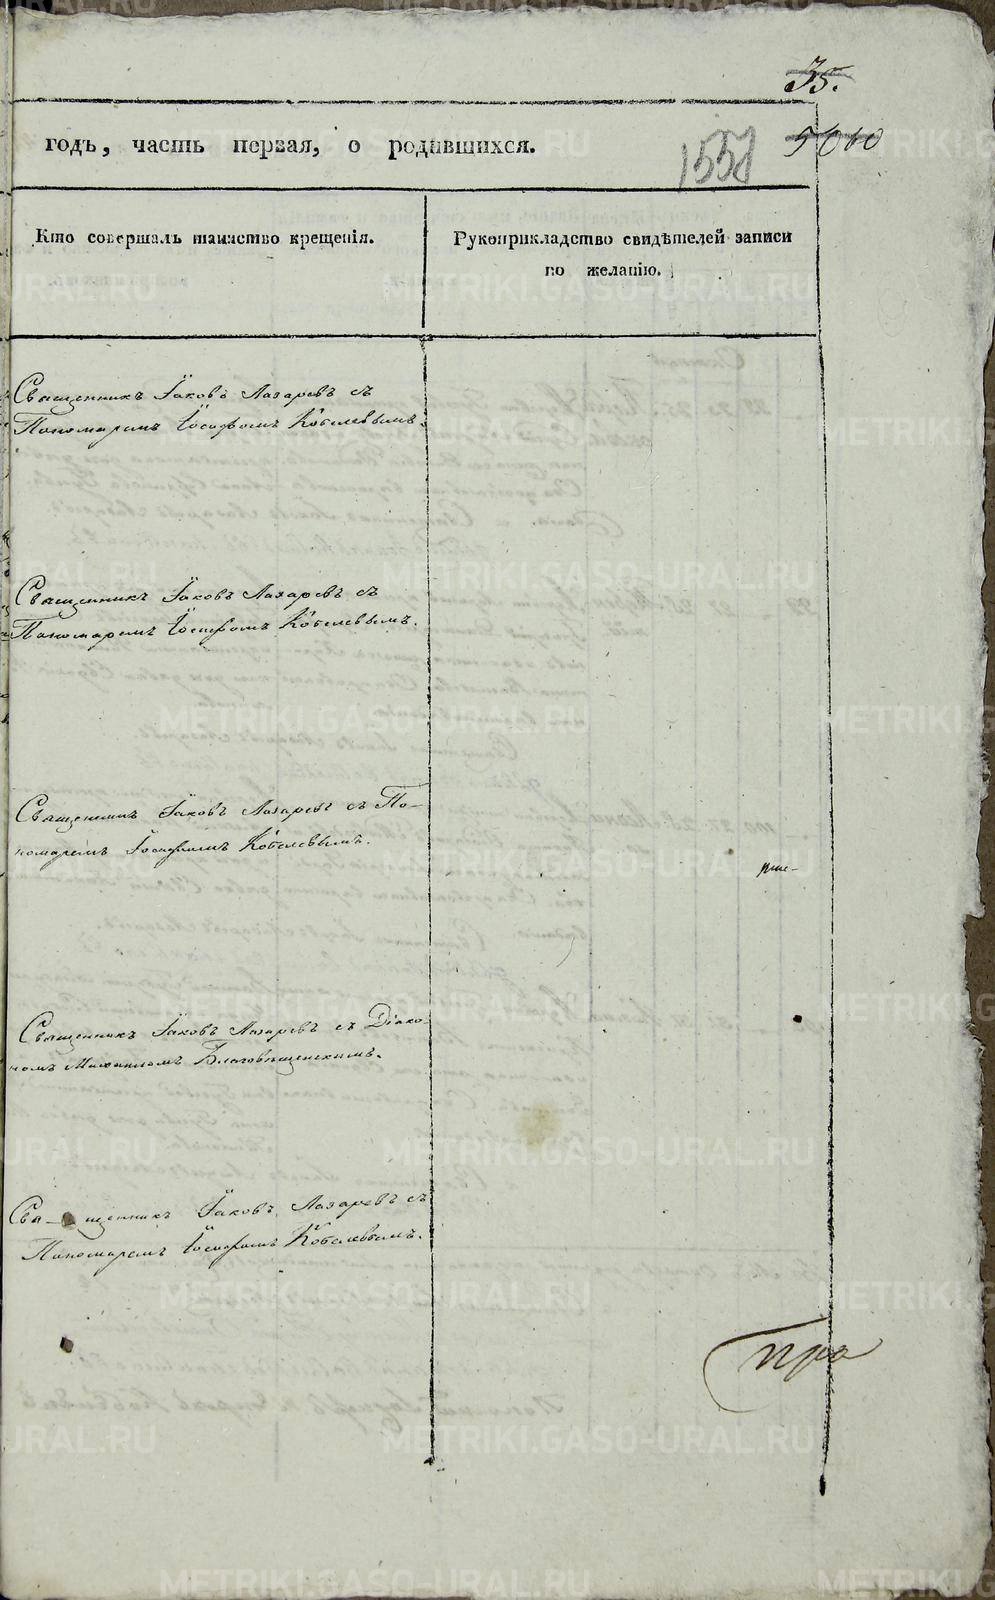 35.
годъ, часть первая, о родившихся.
1558
5060
Кто совершалъ таинство крещенія.
Рукоприкладство свидѣтелей записи
по желанію.
Священникъ Іаковъ Лазаревъ съ
Пономаремъ Іосифомъ Кобелевымъ.
Священникъ Іаковъ Лазаревъ съ
Пономаремъ Іосифомъ Кобелевымъ.
Священникъ Іаковъ Лазаревъ съ По-
номаремъ Іосифомъ Кобелевымъ.
Священникъ Іаковъ Лазаревъ съ Діако-
номъ Михаиломъ Благовѣщенскимъ.
Священникъ Іаковъ Лазаревъ съ
Пономаремъ Іосифомъ Кобелевымъ.
METRIKI.GASO-URAL.RU